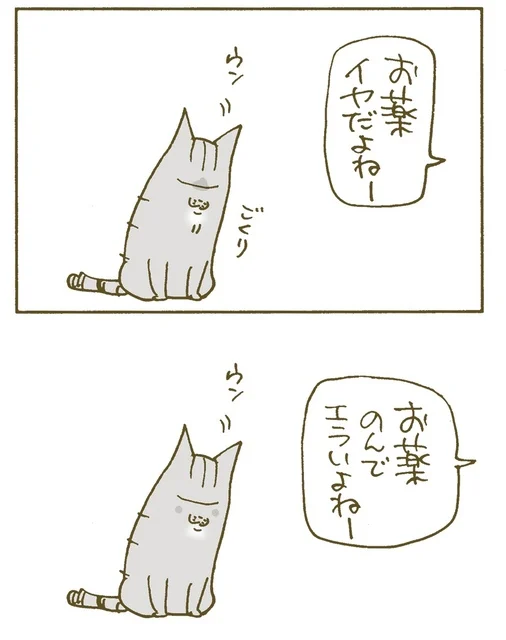 お薬
イヤだよねー
ウン
ごくり
お薬
のんで
エラいよねー
ウン